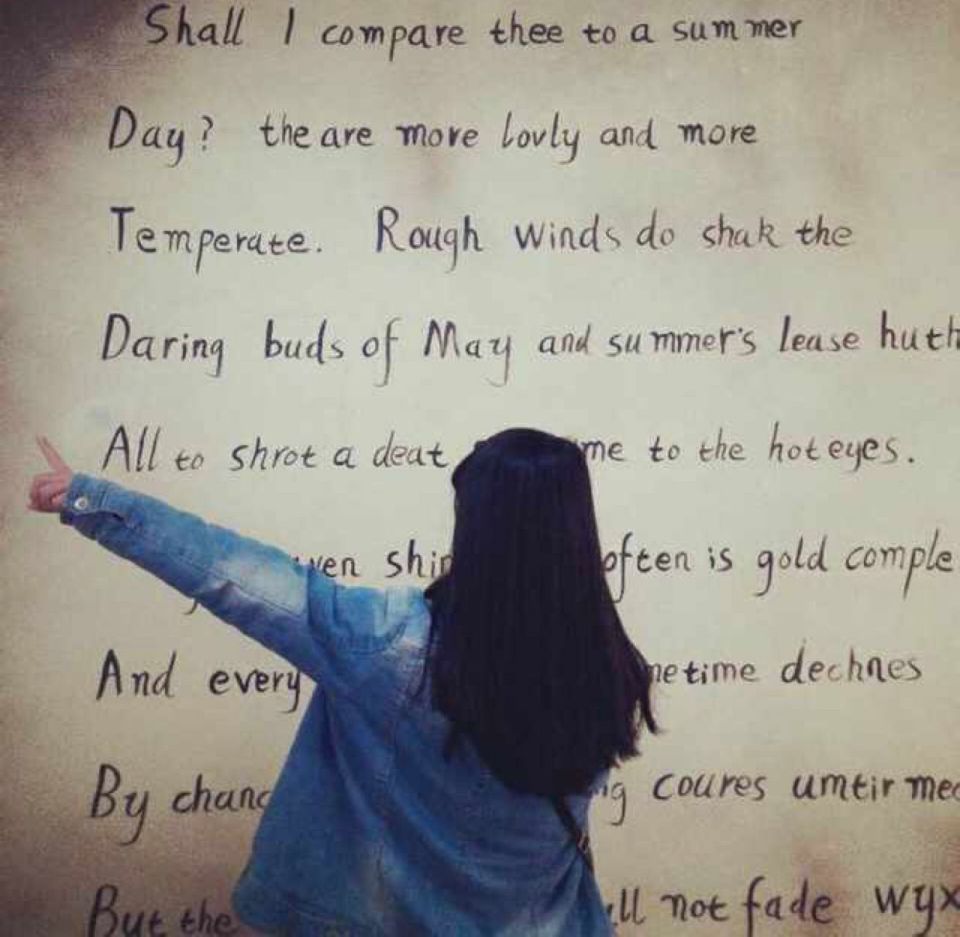 Shall I compare thee to a summer
Day? the are more lovly and more
Temperate. Rough winds do shak the
Daring buds of May and summer's lease huth
All to shrot a deat me to the hot eyes.
shin often is gold comple
And every metime dechnes
By chanc coures umtirmed
But the ll not fade wyx